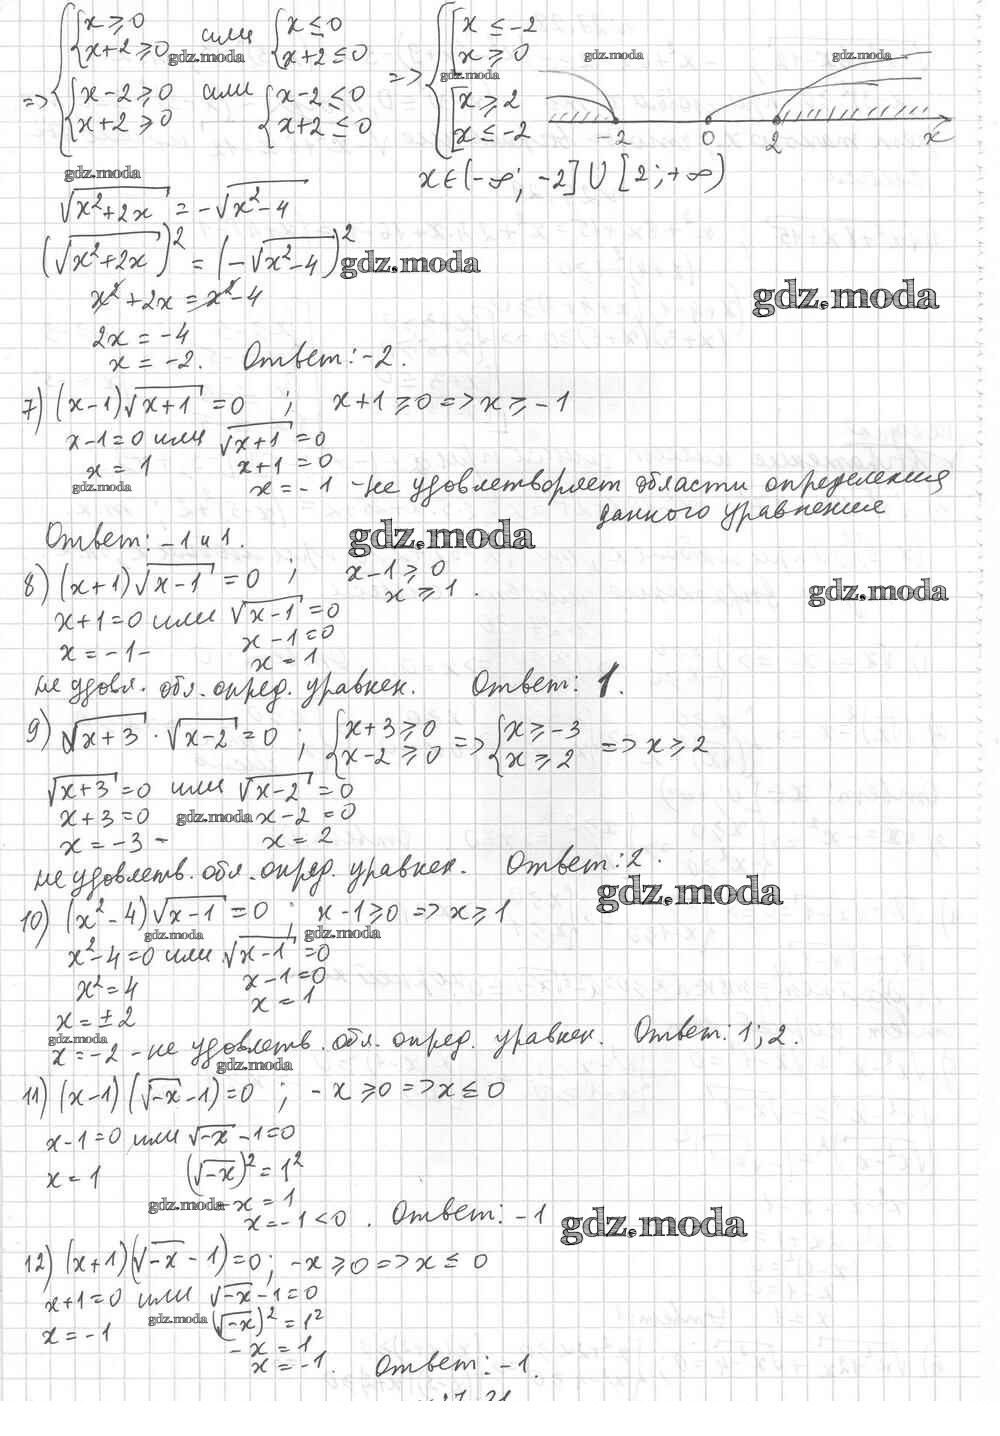 {x ≥ 0 или {x ≤ 0 => {[x ≤ -2
{x+2 ≥ 0 gdz.moda {x+2 ≤ 0 [x ≥ 0 gdz.moda gdz.moda gdz.moda
=> {x-2 ≥ 0 или {x-2 ≤ 0 [x ≥ 2
{x+2 ≥ 0 {x+2 ≤ 0 [x ≤ -2 -2 0 2 x
gdz.moda x ∈ (-∞; -2] U [2; +∞)
√x²+2x = -√x²-4
(√x²+2x)² = (-√x²-4)² gdz.moda
x²+2x = x²-4 gdz.moda
2x = -4
x = -2. Ответ: -2.
7) (x-1)√x+1 = 0 ; x+1 ≥ 0 => x ≥ -1
x-1=0 или √x+1 = 0
x = 1 x+1 = 0
gdz.moda x = -1 - не удовлетворяет области определения
данного уравнения
Ответ: -1 и 1. gdz.moda
8) (x+1)√x-1 = 0 ; x-1 ≥ 0
x ≥ 1. gdz.moda
x+1=0 или √x-1 = 0
x = -1- x-1=0
x = 1
не удовл. обл. опред. уравнен. Ответ: 1.
9) √x+3 · √x-2 = 0 ; {x+3 ≥ 0 => {x ≥ -3 => x ≥ 2
{x-2 ≥ 0 {x ≥ 2
√x+3 = 0 или √x-2 = 0
x+3 = 0 gdz.moda x-2 = 0
x = -3 - x = 2
не удовлетв. обл. опред. уравнен. Ответ: 2.
gdz.moda
10) (x²-4)√x-1 = 0 ; x-1 ≥ 0 => x ≥ 1
gdz.moda gdz.moda
x²-4=0 или √x-1 = 0
x² = 4 x-1=0
x = ±2 x = 1
gdz.moda
x = -2 - не удовлетв. обл. опред. уравнен. Ответ: 1; 2.
gdz.moda
11) (x-1)(√-x-1) = 0 ; -x ≥ 0 => x ≤ 0
x-1=0 или √-x-1=0
x = 1 (√-x)² = 1²
gdz.moda -x = 1
x = -1 < 0. Ответ: -1 gdz.moda
12) (x+1)(√-x-1) = 0; -x ≥ 0 => x ≤ 0
x+1=0 или √-x-1=0
x = -1 gdz.moda (√-x)² = 1²
-x = 1
x = -1. Ответ: -1.